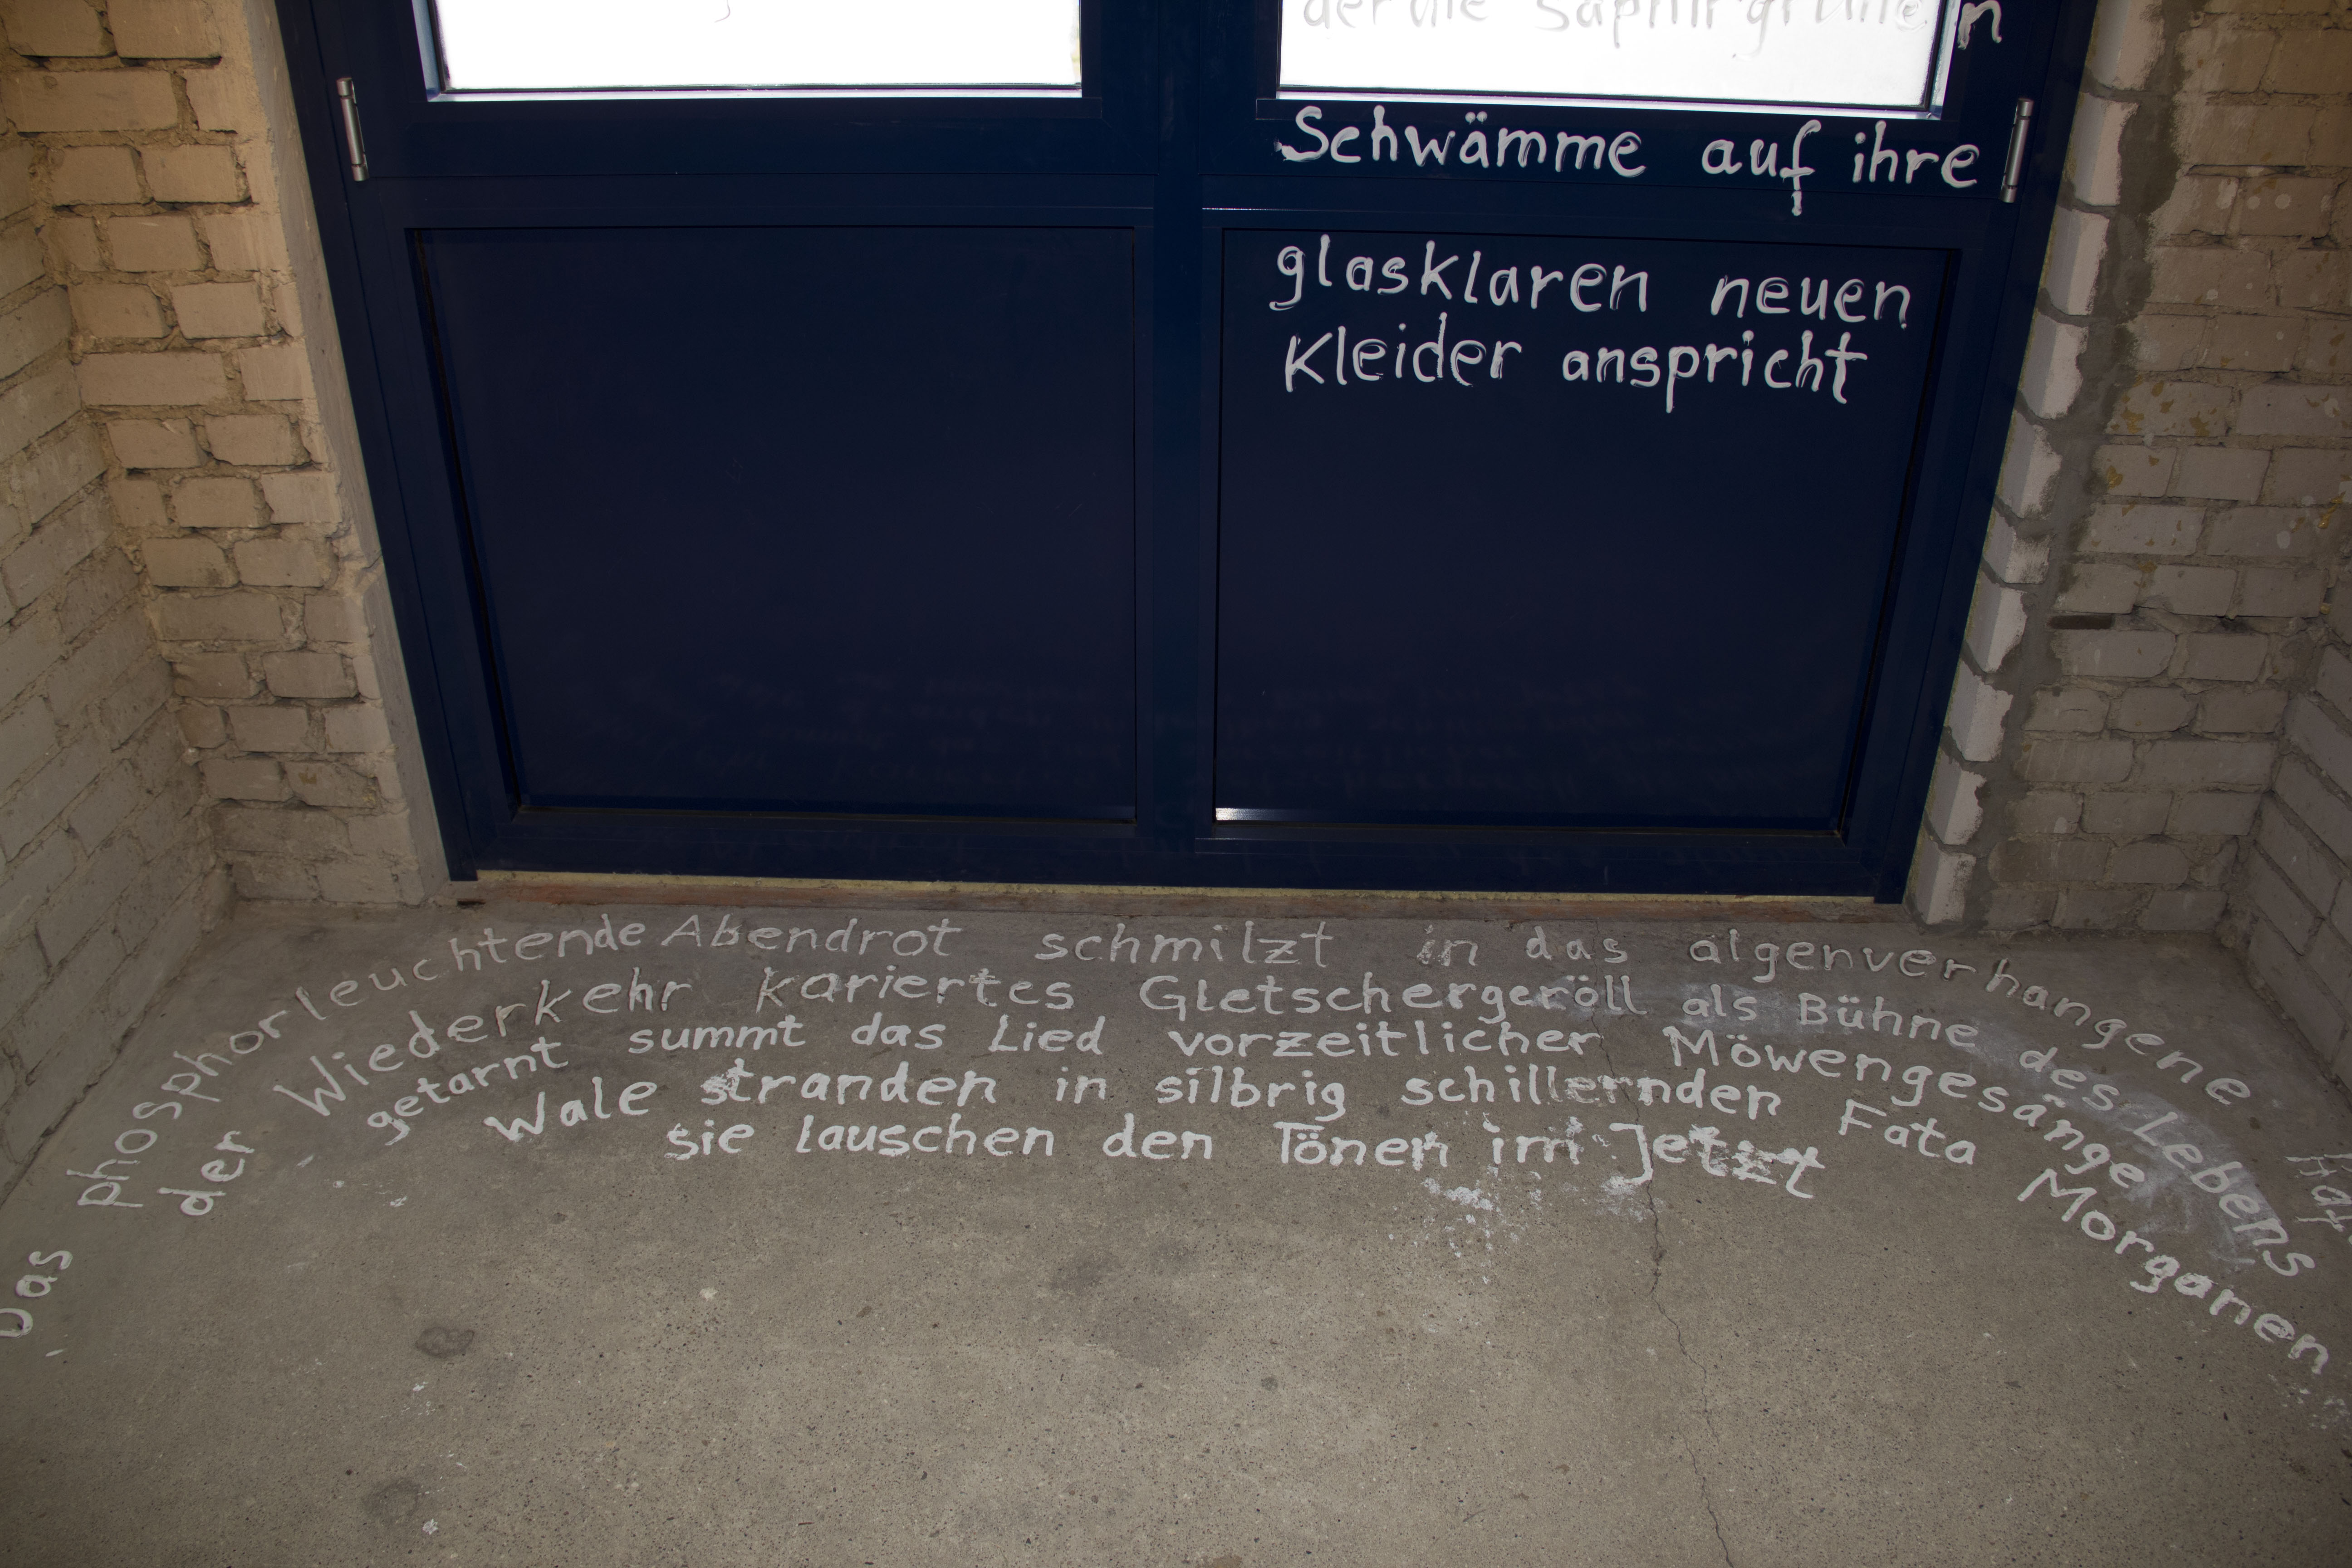 der die saphirgrünen
Schwämme auf ihre
glasklaren neuen
Kleider anspricht
Das phosphorleuchtende Abendrot schmilzt in das algenverhangene
der Wiederkehr kariertes Gletschergeröll als Bühne des Lebens
getarnt summt das Lied vorzeitlicher Möwengesänge
Wale stranden in silbrig schillernden Fata Morganen
sie lauschen den Tönen im Jetzt